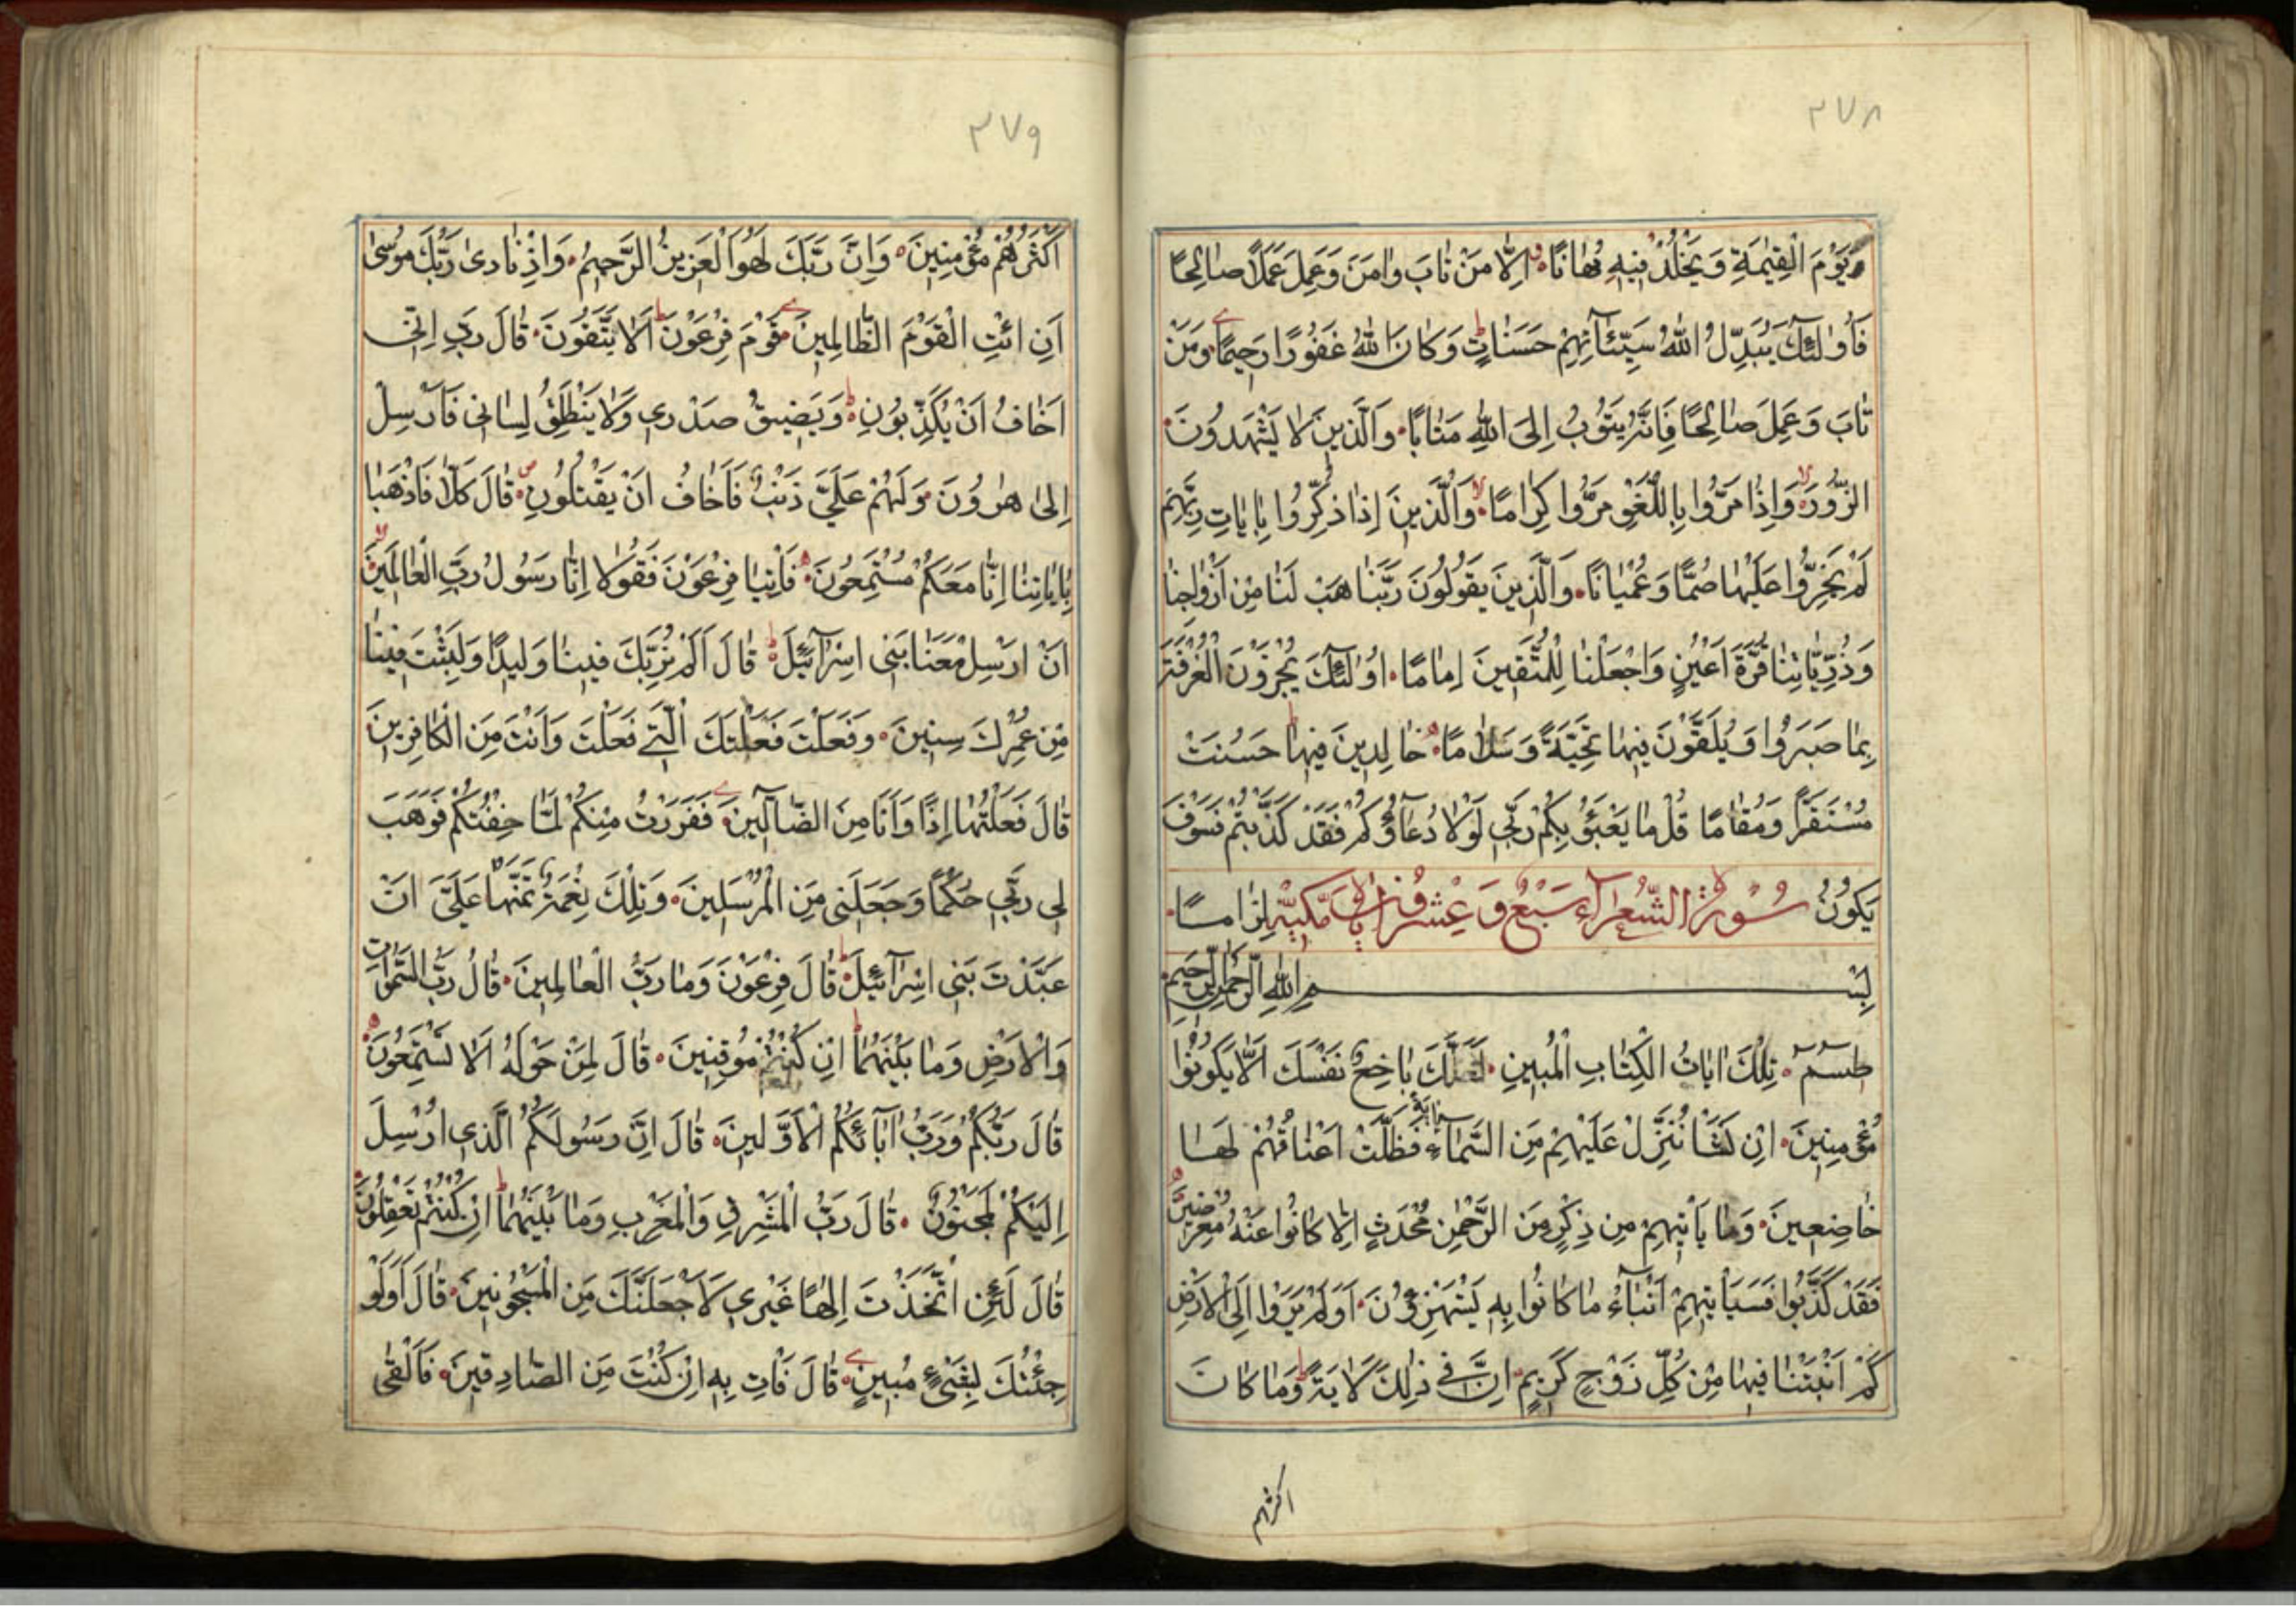 ٣٧٨
يَوْمَ الْقِيٰمَةِ وَيَخْلُدْ فِيهِ مُهَانًا اِلَّا مَنْ تَابَ وَاٰمَنَ وَعَمِلَ عَمَلًا صَالِحًا
فَاُولٰئِكَ يُبَدِّلُ اللّٰهُ سَيِّئَاٰتِهِمْ حَسَنَاتٍ ط وَكَانَ اللّٰهُ غَفُورًا رَحِيمًا وَمَنْ
تَابَ وَعَمِلَ صَالِحًا فَاِنَّهُ يَتُوبُ اِلَى اللّٰهِ مَتَابًا وَالَّذِينَ لَا يَشْهَدُونَ
الزُّورَ لا وَاِذَا مَرُّوا بِاللَّغْوِ مَرُّوا كِرَامًا لا وَالَّذِينَ اِذَا ذُكِّرُوا بِاٰيَاتِ رَبِّهِمْ
لَمْ يَخِرُّوا عَلَيْهَا صُمًّا وَعُمْيَانًا وَالَّذِينَ يَقُولُونَ رَبَّنَا هَبْ لَنَا مِنْ اَزْوَاجِنَا
وَذُرِّيَّاتِنَا قُرَّةَ اَعْيُنٍ وَاجْعَلْنَا لِلْمُتَّقِينَ اِمَامًا اُولٰئِكَ يُجْزَوْنَ الْغُرْفَةَ
بِمَا صَبَرُوا وَيُلَقَّوْنَ فِيهَا تَحِيَّةً وَسَلَامًا خَالِدِينَ فِيهَا ط حَسُنَتْ
مُسْتَقَرًّا وَمُقَامًا قُلْ مَا يَعْبَؤُ بِكُمْ رَبِّي لَوْلَا دُعَاؤُكُمْ فَقَدْ كَذَّبْتُمْ فَسَوْفَ
يَكُونُ سُورَةُ الشُّعَرَآءِ سَبْعٌ وَعِشْرُونَ مَكِّيَّةٌ لِزَامًا
بِسْمِ اللّٰهِ الرَّحْمٰنِ الرَّحِيمِ
طٰسٓمٓ تِلْكَ اٰيَاتُ الْكِتَابِ الْمُبِينِ لَعَلَّكَ بَاخِعٌ نَفْسَكَ اَلَّا يَكُونُوا
مُؤْمِنِينَ اِنْ نَشَأْ نُنَزِّلْ عَلَيْهِمْ مِنَ السَّمَآءِ اٰيَةً فَظَلَّتْ اَعْنَاقُهُمْ لَهَا
خَاضِعِينَ وَمَا يَأْتِيهِمْ مِنْ ذِكْرٍ مِنَ الرَّحْمٰنِ مُحْدَثٍ اِلَّا كَانُوا عَنْهُ مُعْرِضِينَ
فَقَدْ كَذَّبُوا فَسَيَأْتِيهِمْ اَنْبَآءُ مَا كَانُوا بِهِ يَسْتَهْزِؤُنَ اَوَلَمْ يَرَوْا اِلَى الْاَرْضِ
كَمْ اَنْبَتْنَا فِيهَا مِنْ كُلِّ زَوْجٍ كَرِيمٍ اِنَّ فِي ذٰلِكَ لَاٰيَةً ط وَمَا كَانَ
اكثرهم
٣٧٩
اَكْثَرُهُمْ مُؤْمِنِينَ وَاِنَّ رَبَّكَ لَهُوَ الْعَزِيزُ الرَّحِيمُ وَاِذْ نَادٰى رَبُّكَ مُوسٰى
اَنِ ائْتِ الْقَوْمَ الظَّالِمِينَ قَوْمَ فِرْعَوْنَ ط اَلَا يَتَّقُونَ قَالَ رَبِّ اِنِّي
اَخَافُ اَنْ يُكَذِّبُونِ ط وَيَضِيقُ صَدْرِي وَلَا يَنْطَلِقُ لِسَانِي فَاَرْسِلْ
اِلٰى هٰرُونَ وَلَهُمْ عَلَيَّ ذَنْبٌ فَاَخَافُ اَنْ يَقْتُلُونِ قَالَ كَلَّا فَاذْهَبَا
بِاٰيَاتِنَا اِنَّا مَعَكُمْ مُسْتَمِعُونَ فَأْتِيَا فِرْعَوْنَ فَقُولَا اِنَّا رَسُولُ رَبِّ الْعَالَمِينَ لا
اَنْ اَرْسِلْ مَعَنَا بَنِي اِسْرَآئِيلَ ط قَالَ اَلَمْ نُرَبِّكَ فِينَا وَلِيدًا وَلَبِثْتَ فِينَا
مِنْ عُمُرِكَ سِنِينَ وَفَعَلْتَ فَعْلَتَكَ الَّتِي فَعَلْتَ وَاَنْتَ مِنَ الْكَافِرِينَ
قَالَ فَعَلْتُهَا اِذًا وَاَنَا مِنَ الضَّآلِّينَ فَفَرَرْتُ مِنْكُمْ لَمَّا خِفْتُكُمْ فَوَهَبَ
لِي رَبِّي حُكْمًا وَجَعَلَنِي مِنَ الْمُرْسَلِينَ وَتِلْكَ نِعْمَةٌ تَمُنُّهَا عَلَيَّ اَنْ
عَبَّدْتَ بَنِي اِسْرَآئِيلَ ط قَالَ فِرْعَوْنُ وَمَا رَبُّ الْعَالَمِينَ قَالَ رَبُّ السَّمٰوَاتِ
وَالْاَرْضِ وَمَا بَيْنَهُمَا ط اِنْ كُنْتُمْ مُوقِنِينَ قَالَ لِمَنْ حَوْلَهُ اَلَا تَسْتَمِعُونَ
قَالَ رَبُّكُمْ وَرَبُّ اٰبَآئِكُمُ الْاَوَّلِينَ قَالَ اِنَّ رَسُولَكُمُ الَّذِي اُرْسِلَ
اِلَيْكُمْ لَمَجْنُونٌ قَالَ رَبُّ الْمَشْرِقِ وَالْمَغْرِبِ وَمَا بَيْنَهُمَا ط اِنْ كُنْتُمْ تَعْقِلُونَ
قَالَ لَئِنِ اتَّخَذْتَ اِلٰهًا غَيْرِي لَاَجْعَلَنَّكَ مِنَ الْمَسْجُونِينَ قَالَ اَوَلَوْ
جِئْتُكَ بِشَيْءٍ مُبِينٍ قَالَ فَأْتِ بِهِ اِنْ كُنْتَ مِنَ الصَّادِقِينَ فَاَلْقٰى